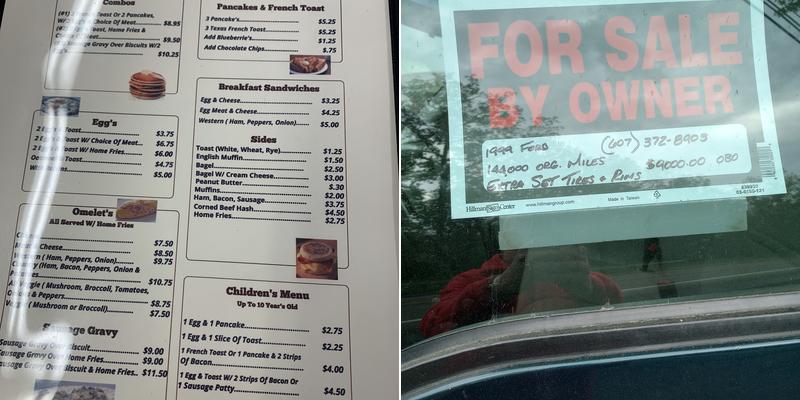 Combos
(#1) 2 French Toast Or 2 Pancakes,
W/ 2 Choice Of Meat $8.95
(#2) French Toast, Home Fries &
Choice Of Meat $9.50
Sausage Gravy Over Biscuits W/2 $10.25
Egg's
2 Toast $3.75
2 Toast W/ Choice Of Meat... $6.75
2 Toast W/ Home Fries $6.00
Toast $4.75
$5.00
Omelet's
All Served W/ Home Fries
$7.50
Cheese $8.50
Western ( Ham, Peppers, Onion) $9.75
(Ham, Bacon, Peppers, Onion & $10.75
Veggie ( Mushroom, Broccoli, Tomatoes,
& Peppers $8.75
( Mushroom or Broccoli) $7.50
Sausage Gravy
Sausage Gravy Over Biscuit $9.00
Sausage Gravy Over Home Fries $9.00
Sausage Gravy Over Biscuit & Home Fries $11.50
Pancakes & French Toast
3 Pancake's $5.25
3 Texas French Toast $5.25
Add Blueberrie's $1.25
Add Chocolate Chips $.75
Breakfast Sandwiches
Egg & Cheese $3.25
Egg Meat & Cheese $4.25
Western ( Ham, Peppers, Onion) $5.00
Sides
Toast (White, Wheat, Rye) $1.25
English Muffin $1.50
Bagel $2.50
Bagel W/ Cream Cheese $3.00
Peanut Butter $.30
Muffins $2.00
Ham, Bacon, Sausage $3.75
Corned Beef Hash $4.50
Home Fries $2.75
Children's Menu
Up To 10 Year's Old
1 Egg & 1 Pancake $2.75
1 Egg & 1 Slice Of Toast $2.25
1 French Toast Or 1 Pancake & 2 Strips
Of Bacon $4.00
1 Egg & Toast W/ 2 Strips Of Bacon Or
1 Sausage Patty $4.50
FOR SALE
BY OWNER
1999 FORD (607) 372-8903
144000 ORG. MILES $9000.00 OBO
EXTRA SET TIRES & RIMS
Hillman Sign Center www.hillmangroup.com Made in Taiwan